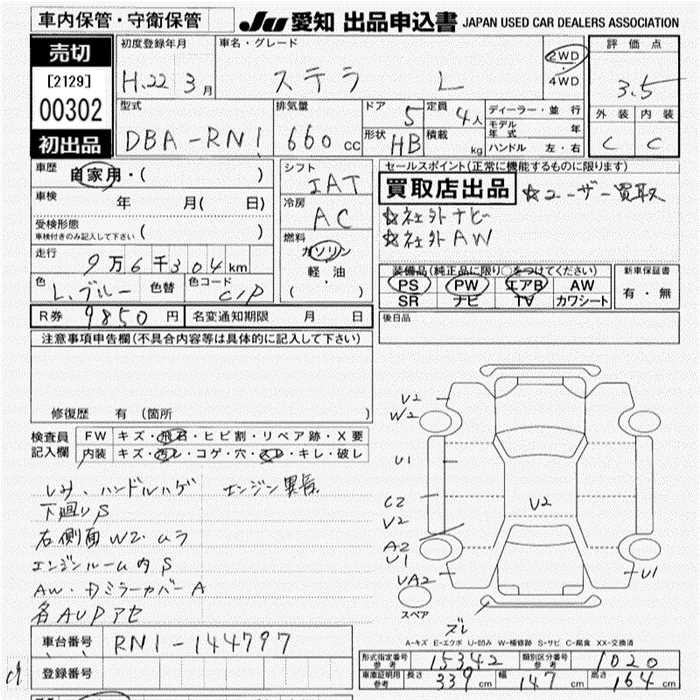 車内保管・守衛保管
JU 愛知 出品申込書 JAPAN USED CAR DEALERS ASSOCIATION
売切
[2129]
00302
初出品
初度登録年月
H.22 3月
車名・グレード
ステラ L
2WD
4WD
評価点
3.5
外装 内装
C C
型式
DBA-RN1
排気量
660 cc
ドア 5
形状 HB
定員 4人
積載 kg
ディーラー・並行
モデル年式 年
ハンドル 左・右
車歴
自家用・( )
車検
年 月( 日)
受検形態
車検付きのみ記入して下さい ( )
走行
9万6千304km
色 L.ブルー 色替 色コード C/P
シフト
IAT
冷房
AC
燃料
ガソリン
軽・油
( )
セールスポイント(正常に機能するものに限ります)
買取店出品 ☆ユーザー買取
☆社外ナビ
☆社外AW
装備品(純正品に限り○をつけてください)
PS PW エアB AW
SR ナビ TV カワシート
新車保証書
有・無
R券 9850円 名変通知期限 月 日
後日品
注意事項申告欄(不具合内容等は具体的に記入して下さい)
修復歴 有(箇所 )
検査員記入欄
FW キズ・飛石・ヒビ割・リペア跡・X要
内装 キズ・汚レ・コゲ・穴・スレ・キレ・破レ
シミ、ハンドルハゲ エンジン異音
下廻りS
右側面W2.ムラ
エンジンルーム内S
AW・Dミラーカバー A
各AUPアセ
V2
W2
U1
C2
V2
A2
U1
VA2
V2
U1
スペア
ズレ
A-キズ E-エクボ U-凹み W-補修跡 S-サビ C-腐食 XX-交換済
車台番号 RN1-144797
登録番号
形式指定番号 参考 15342 類別区分番号 参考 1020
車庫証明用 参考 長さ 339cm 幅 147cm 高さ 164cm